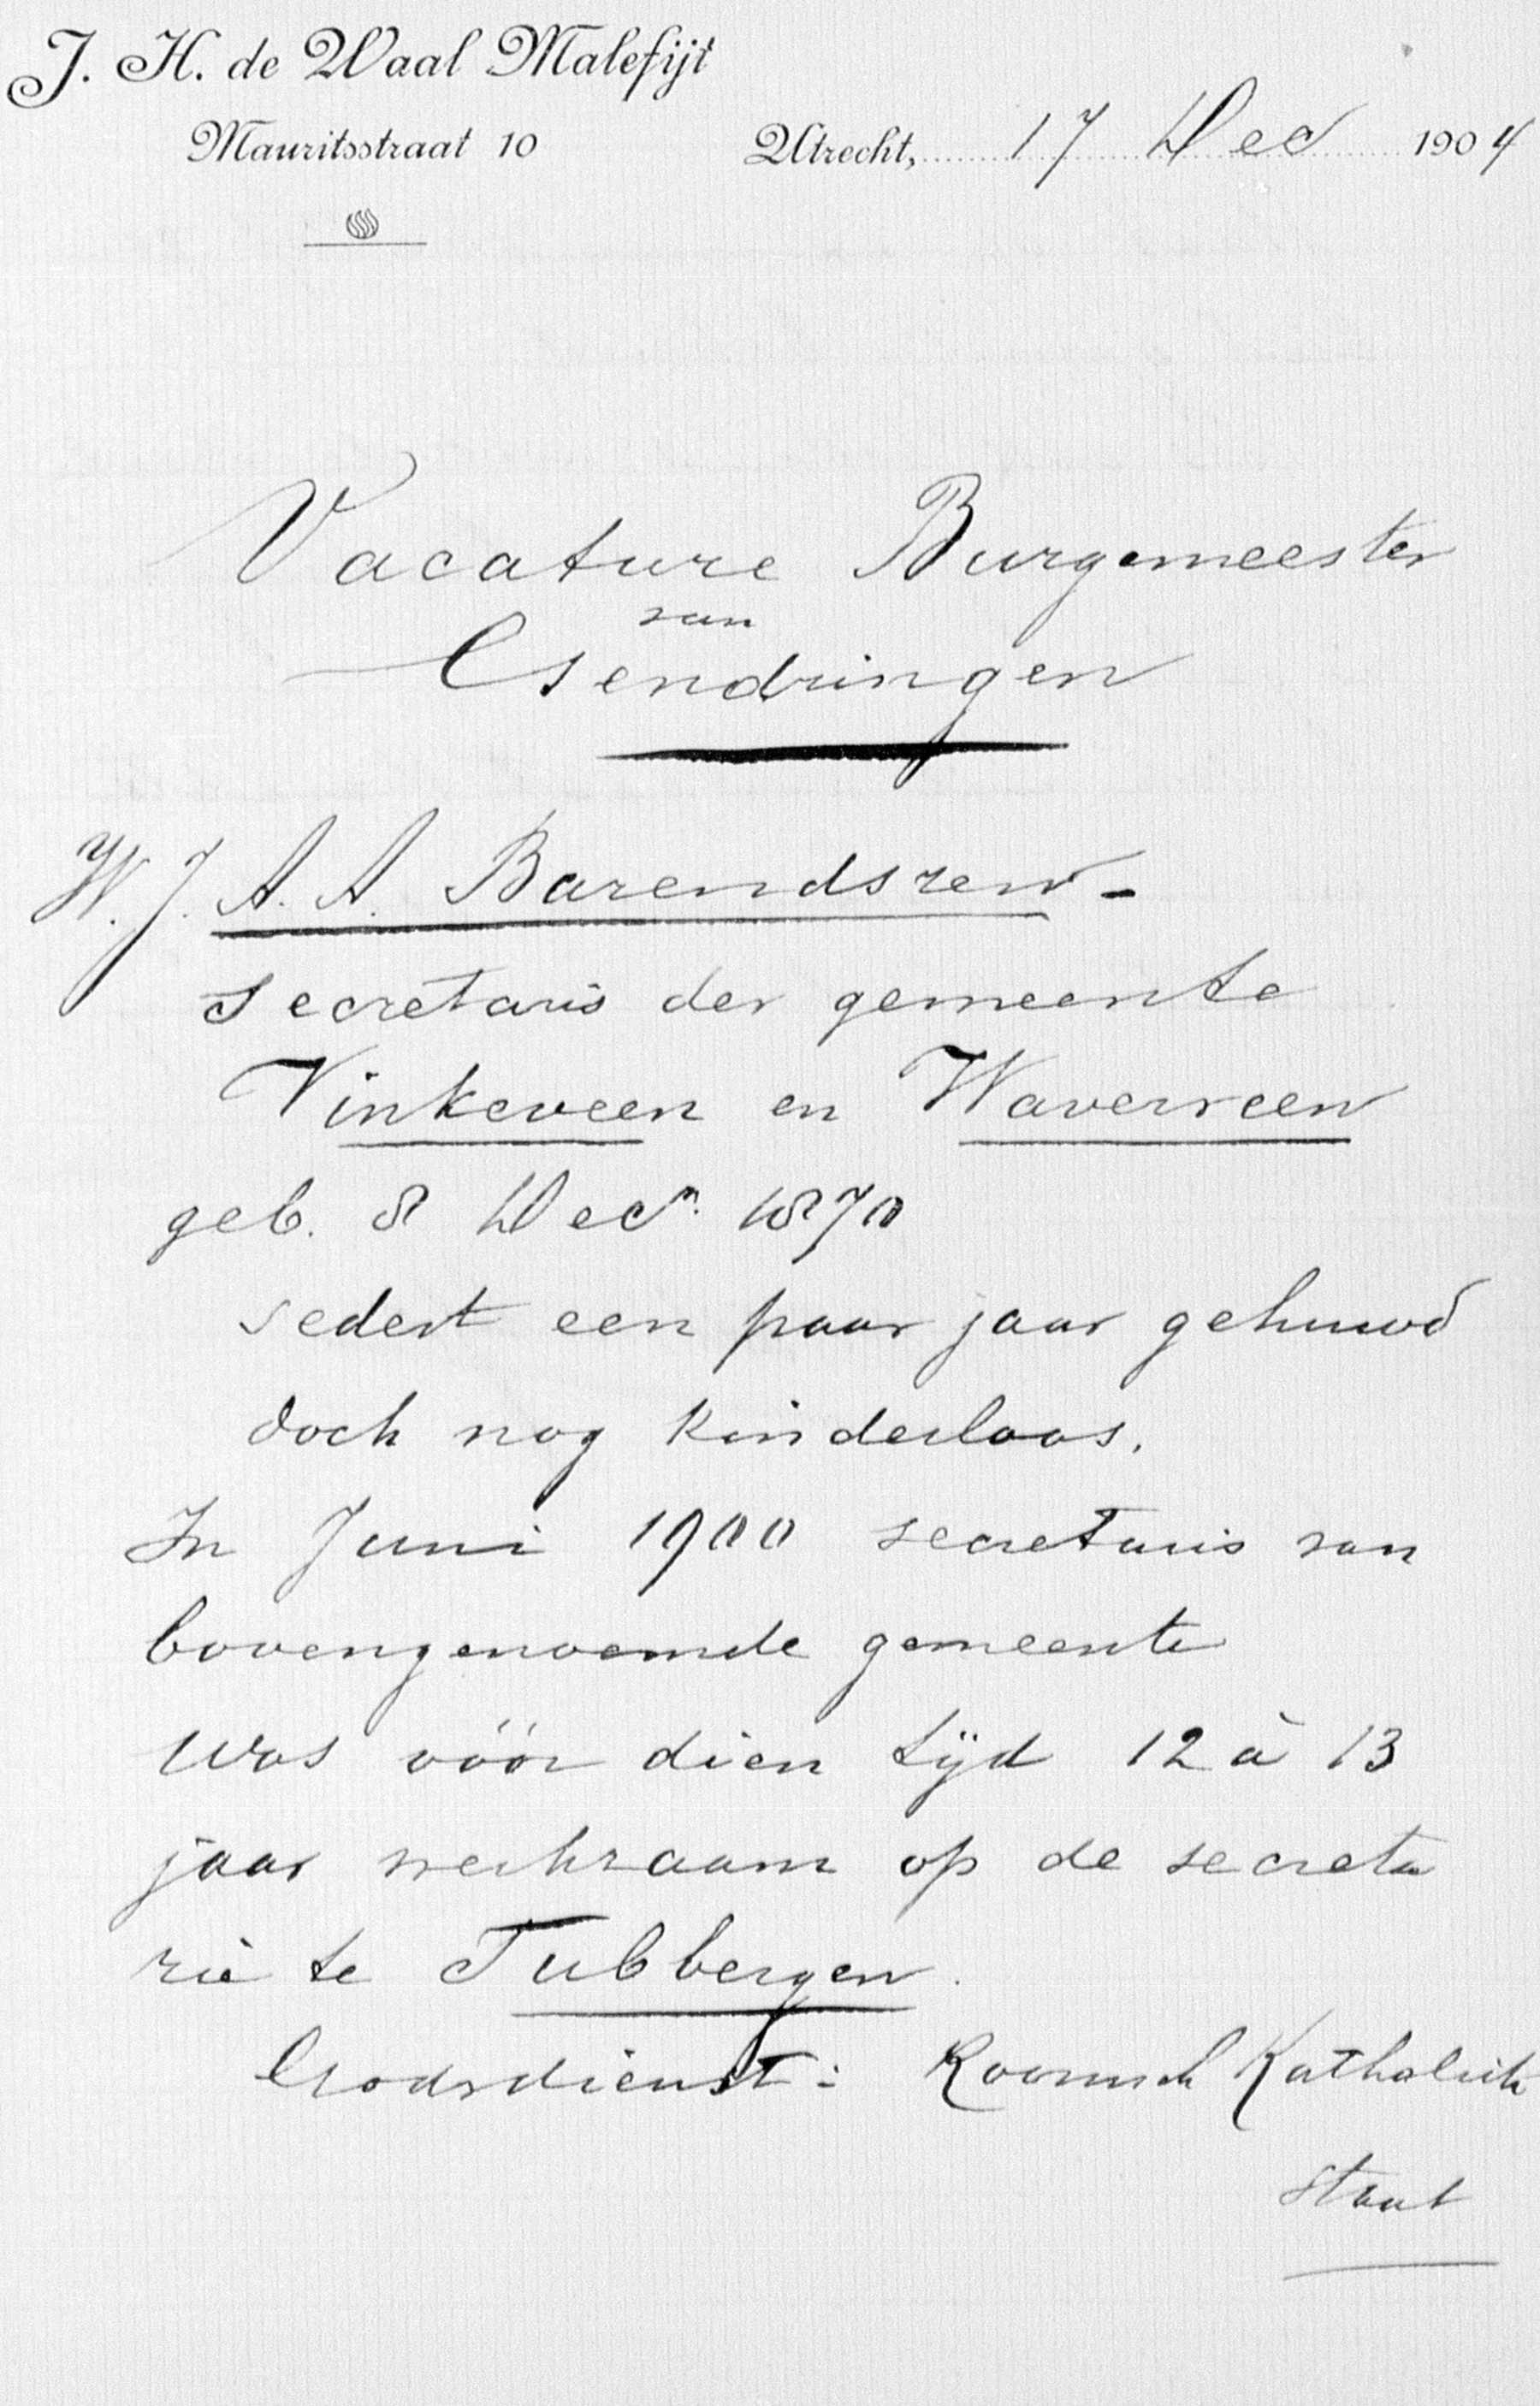 J. H. de Waal Malefijt
Mauritsstraat 10
Utrecht, 17 Dec 1904
Vacature Burgemeester
van
Gendringen
W. J. A. A. Barendsen -
secretaris der gemeente
Vinkeveen en Waverveen
geb. 8 Decr. 1870
sedert een paar jaar gehuwd
doch nog kinderloos.
In Juni 1900 secretaris van
bovengenoemde gemeente
was vóór dien tijd 12 à 13
jaar werkzaam op de secreta
rie te Tubbergen.
Godsdienst: Roomsch Katholiek
staat